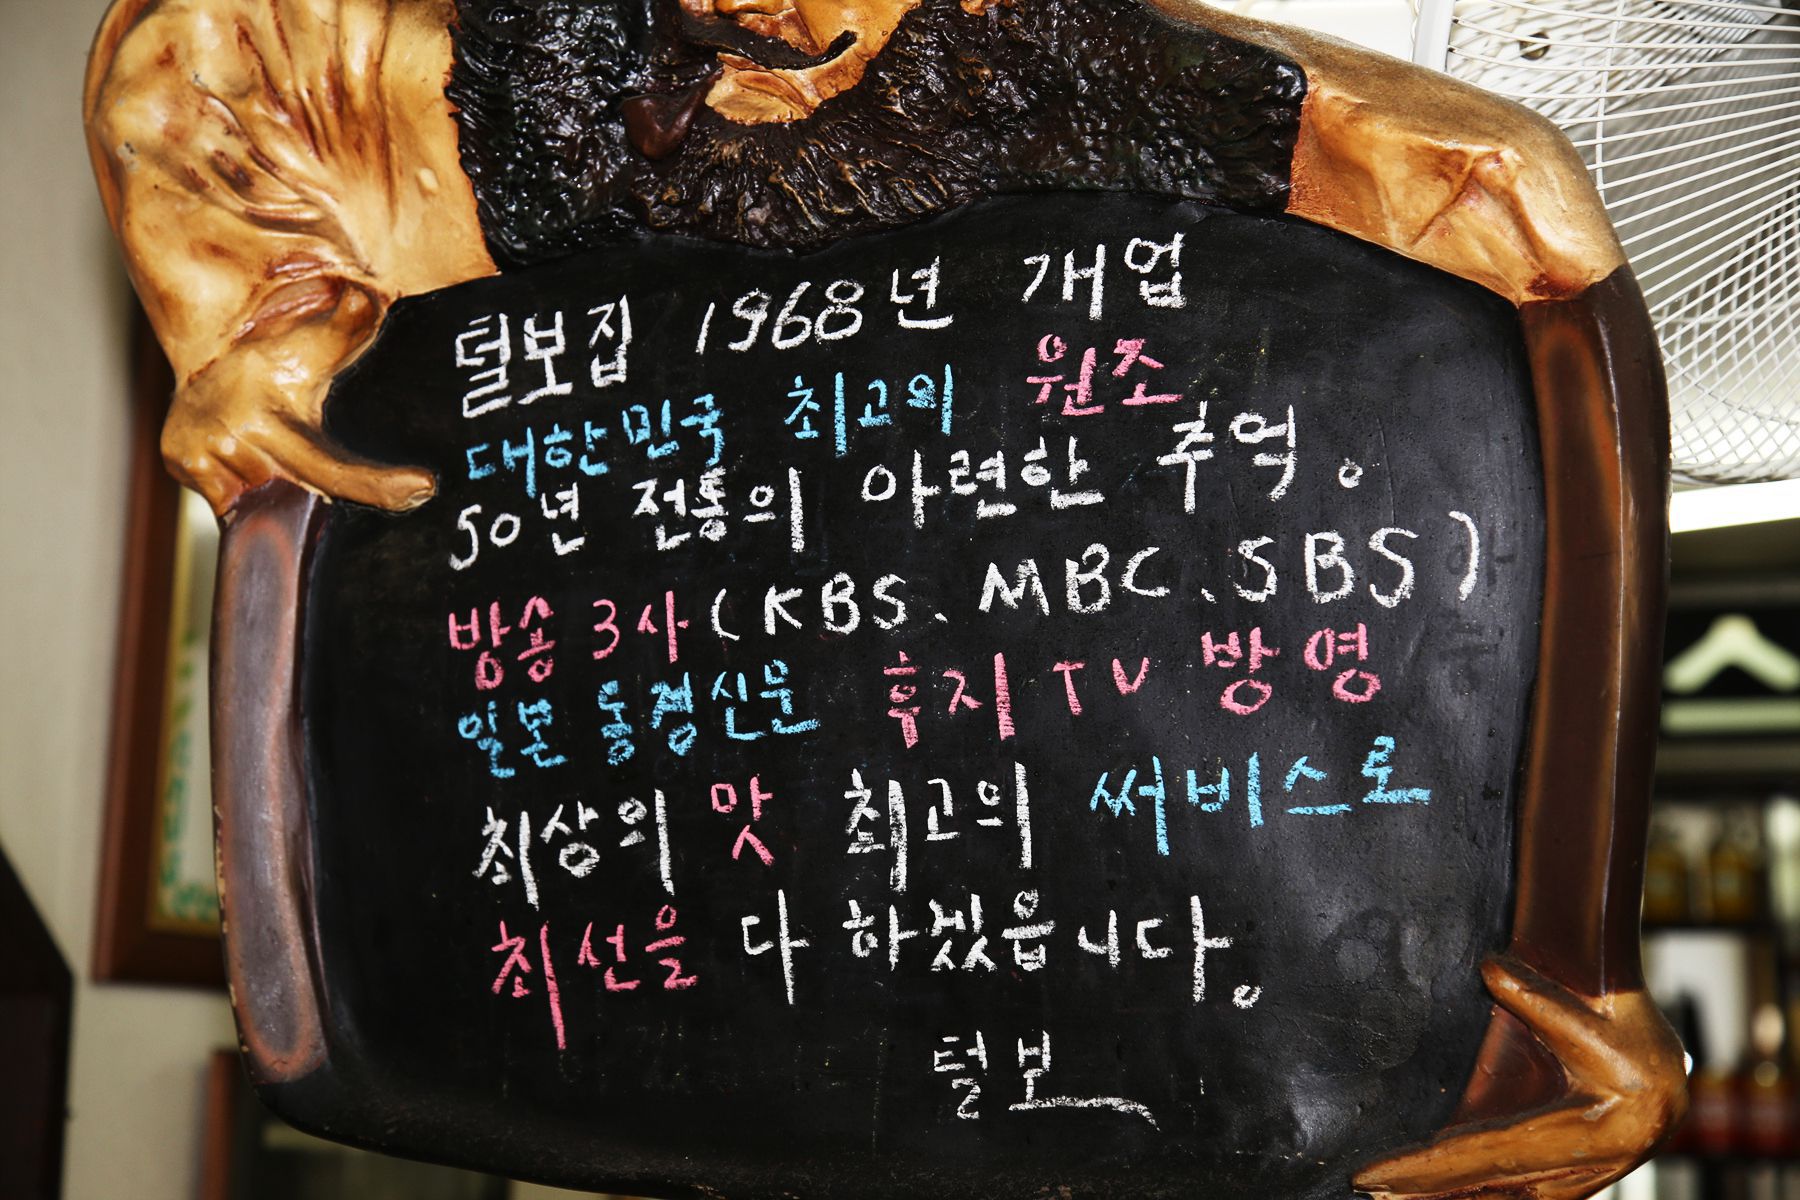 털보집 1968년 개업
대한민국 최고의 원조
50년 전통의 아련한 추억。
방송 3사(KBS、MBC、SBS)
일본 동경신문 후지TV 방영
최상의 맛 최고의 써비스로
최선을 다 하겠읍니다。
털보